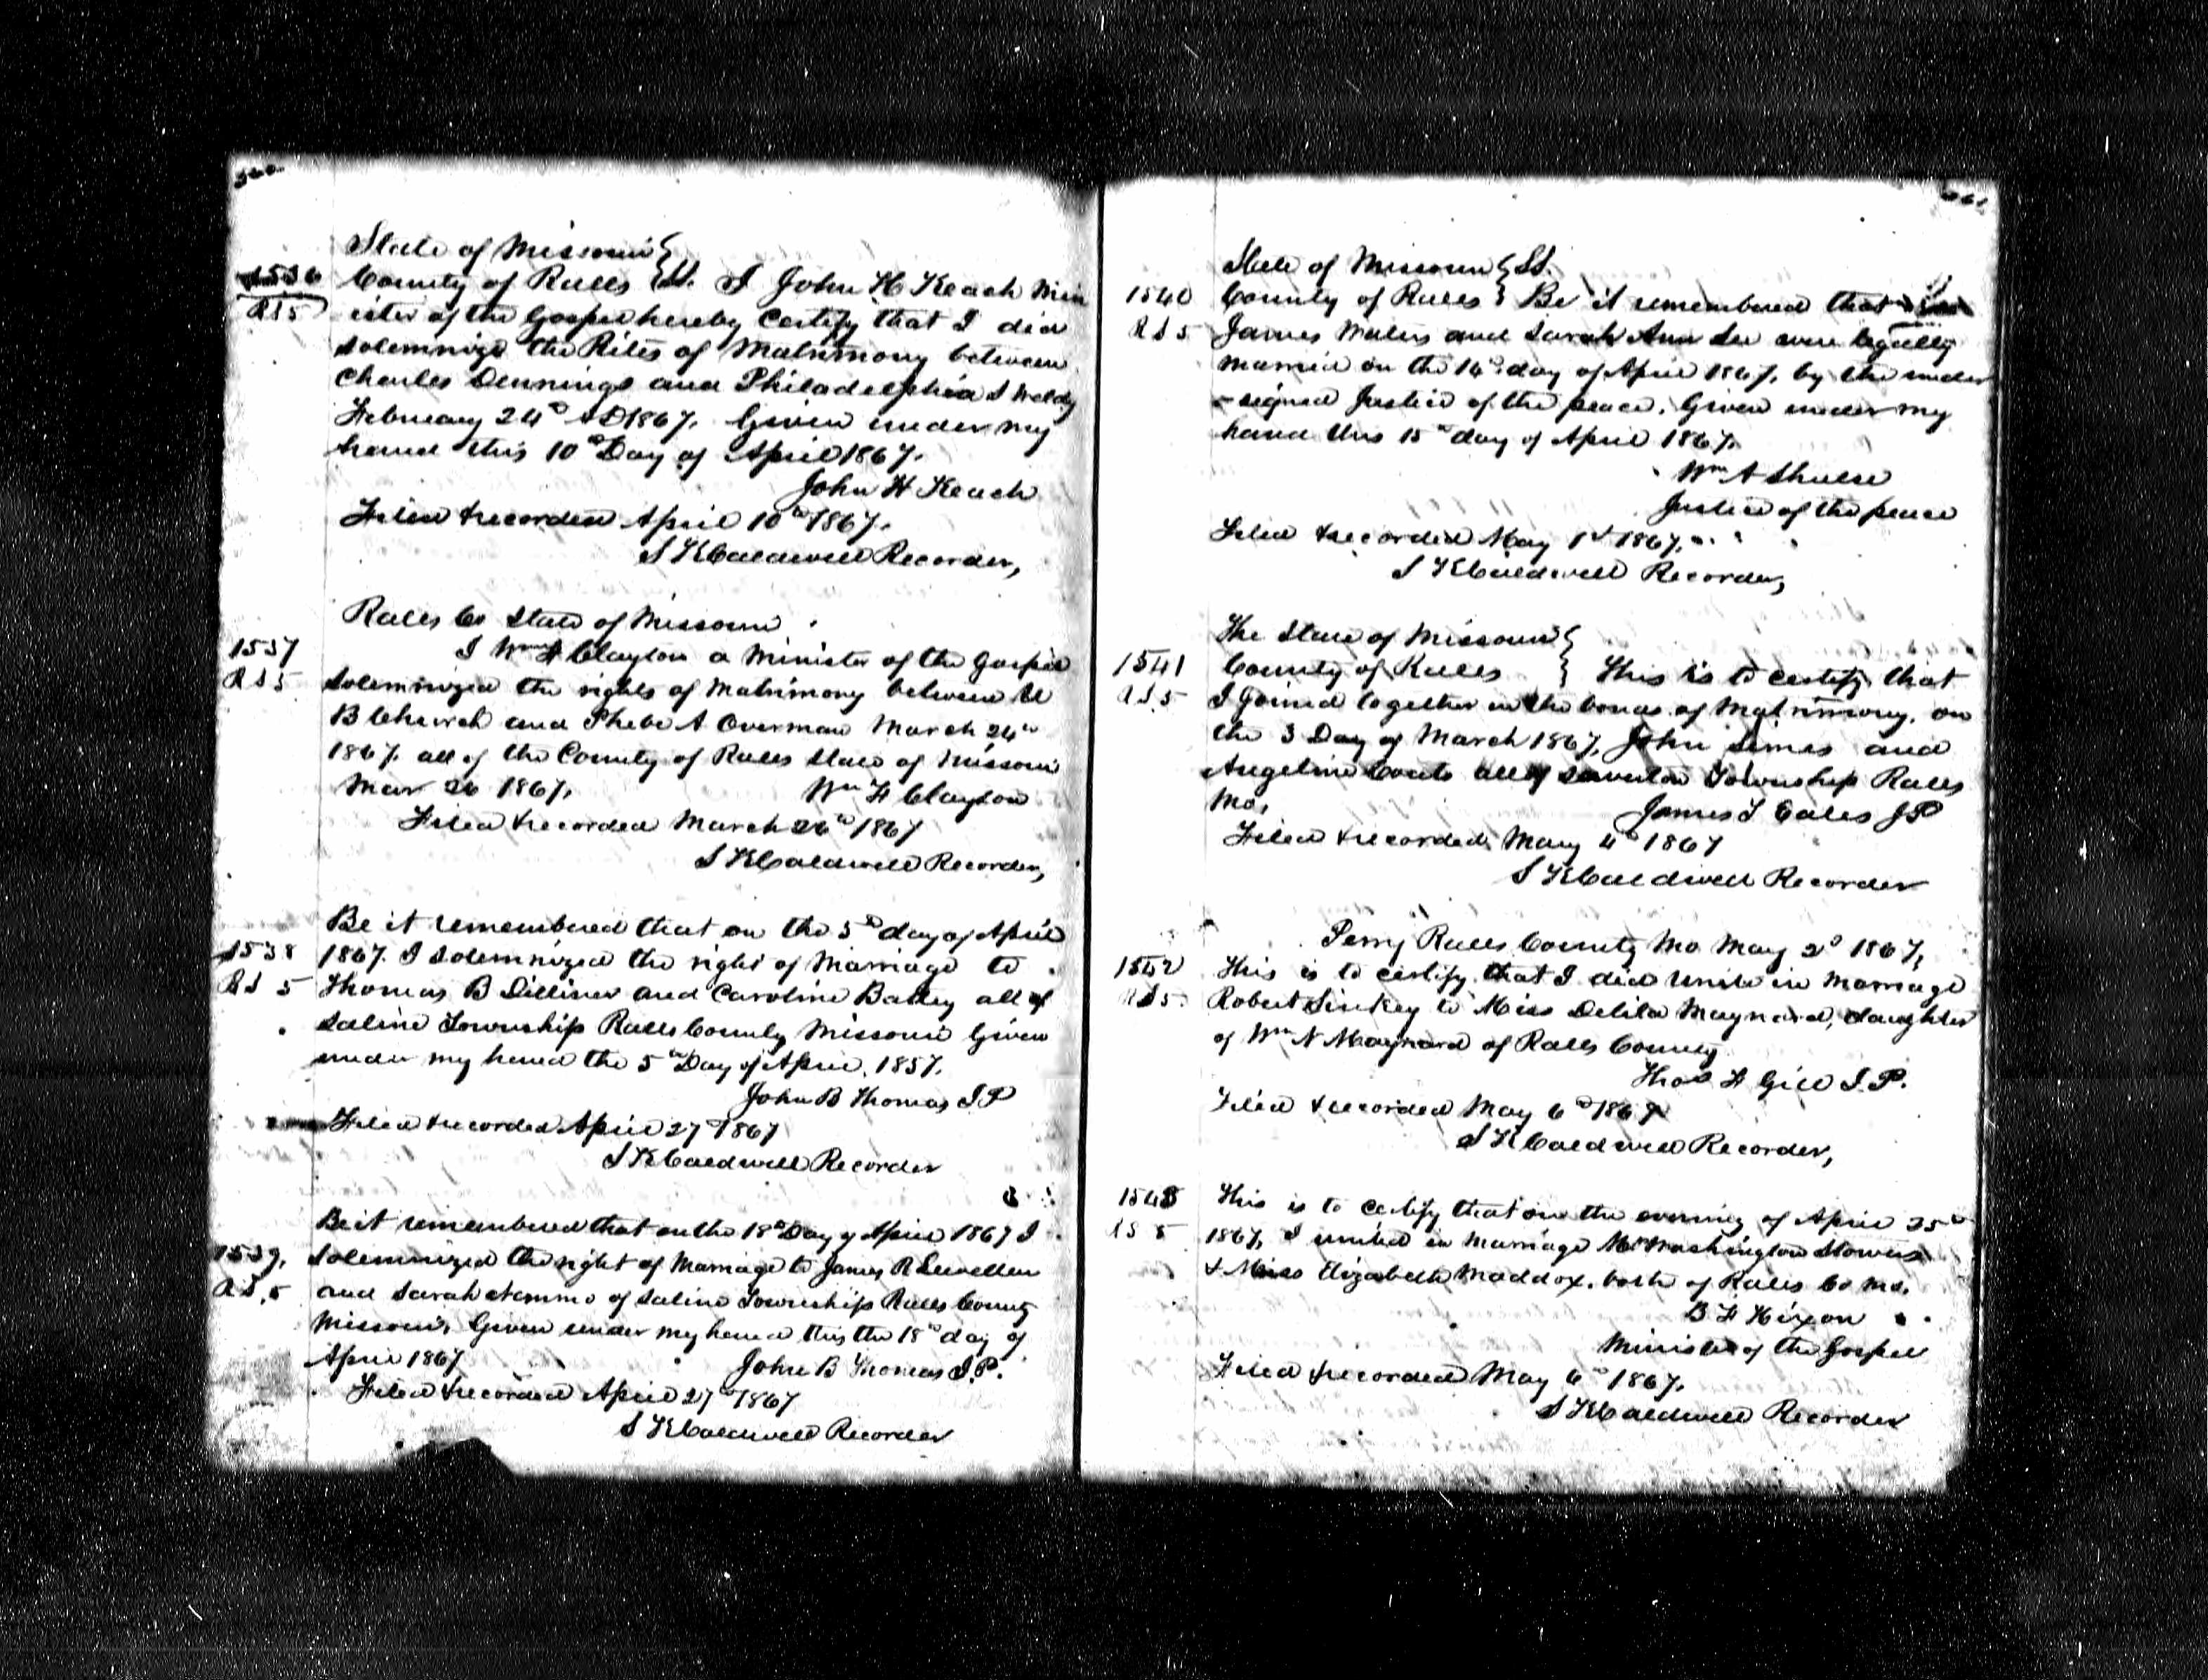 State of Missouri }
1536 County of Ralls } SS. I John H Keach Min
R S 5 ister of the Gospel hereby Certify that I did
solemnize the Rites of Matrimony between
Charles Dennings and Philadelphia S
February 24th AD 1867. Given under my
hand this 10th Day of April 1867.
John H Keach
Filed & recorded April 10th 1867.
S K Caldwell Recorder,
Ralls Co State of Missouri
1537 I Wm H Clayton a Minister of the Gospel
R S 5 solemnized the rights of Matrimony between
B Church and Phebe A Overman March 24th
1867. all of the County of Ralls State of Missouri
Mar 26 1867. Wm H Clayton
Filed & recorded March 26th 1867
S K Caldwell Recorder,
Be it remembered that on the 5th day of April
1538 1867. I solemnized the right of Marriage to
R S 5 Thomas B and Caroline Bailey all of
Saline Township Ralls County Missouri Given
under my hand the 5th Day of April, 1857.
John B Thomas J P
Filed & recorded April 27th 1867
S K Caldwell Recorder
Be it remembered that on the 18th Day of April 1867 I
1539, solemnized the right of Marriage to James R Lewellen
R S, 5 and Sarah Nemmo of Saline Township Ralls County
Missouri, Given under my hand this the 18th day of
April 1867 John B Thomas J.P.
Filed & recorded April 27th 1867
S K Caldwell Recorder
State of Missouri } SS.
1540 County of Ralls } Be it remembered that
R S 5 James Waters and Sarah Ann Lee were legally
married on the 14th day of April 1867, by the under
-signed Justice of the peace. Given under my
hand this 15th day of April 1867.
Wm A Shulse
Justice of the peace
Filed & recorded May 1st 1867.
S K Caldwell Recorder,
The State of Missouri }
1541 County of Ralls } This is to certify that
R S. 5 I joined together in the bonds of Matrimony, on
the 3 Day of March 1867, John Simes and
Angeline Coats all of Saverton Township Ralls
Mo, James T Eales J P
Filed & recorded May 4th 1867
S K Caldwell Recorder
Perry Ralls County Mo May 2d 1867,
1542 This is to certify that I did Unite in Marriage
R S 5 Robert Sinkey to Miss Delila Maynard, daughter
of Wm N Maynard of Ralls County
Thos H Gill J.P.
Filed & recorded May 6th 1867
S K Caldwell Recorder,
1543 This is to certify that on the evening of April 25th
R S 5 1867, I united in Marriage Mr Washington Stowers
& Miss Elizabeth Maddox, both of Ralls Co Mo.
B F Hixon
Minister of the Gospel
Filed & recorded May 6th 1867.
S K Caldwell Recorder